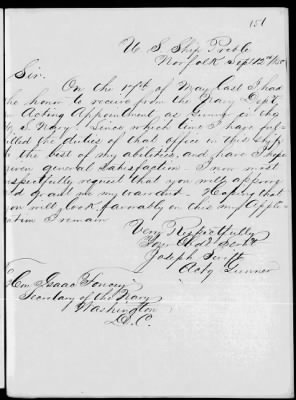 151
U. S. Ship Preble
Norfolk Sept 12th /50
Sir.
On the 17th of May last I had
he honor to receive from the Navy Dept.
n Acting Appointment as Gunner in the
U. S. Navy. Since which time I have ful-
illed the duties of that office in this Ship
the best of my abilities, and have I hope
given general Satisfaction. I now most
espectfully request that you will
me my warrant. Hoping that
you will look favorably on this my Applic-
ation I remain
Very Respectfully
Your Obdt Servt
Joseph Swift
Actg Gunner
Hon Isaac Toucey
Secretary of the Navy
Washington
D. C.